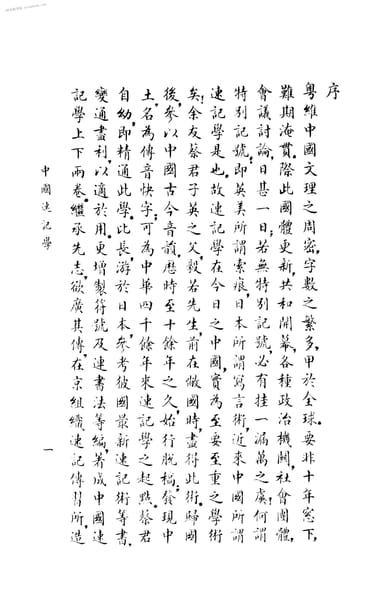 序
粵維中國文理之周密字數之繁多甲於全球要非十年窓下
難期淹貫際此國體更新共和開幕各種政治機關社會團體
會議討論日甚一日若無特別記號必有挂一漏萬之虞何謂
特別記號即英美所謂索痕日本所謂寫言術近來中國所謂
速記學是也故速記學在今日之中國實為至要至重之學術
矣余友蔡君子英之父毅若先生前在敝國時盡得此術歸國
後參以中國古今音韻歷時至十餘年之久始行脫稿發現中
土名為傳音快字可為中華四十餘年來速記學之起點蔡君
自幼即精通此學比長游於日本參考彼國最新速記術等書
變通盡利以適於用更增製符號及連書法等編著成中國速
記學上下兩卷繼承先志欲廣其傳在京組織速記傳習所造
中國速記學
一